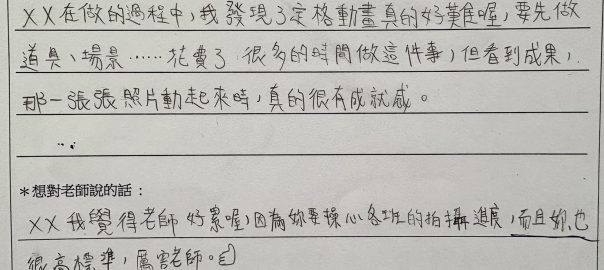 ××在做的過程中,我發現了定格動畫真的好難喔,要先做
道具、場景……花費了很多的時間做這件事,但看到成果,
那一張張照片動起來時,真的很有成就感。
*想對老師說的話:
××我覺得老師好累喔,因為妳要操心各班的拍攝進度,而且妳也
很高標準,厲害老師。